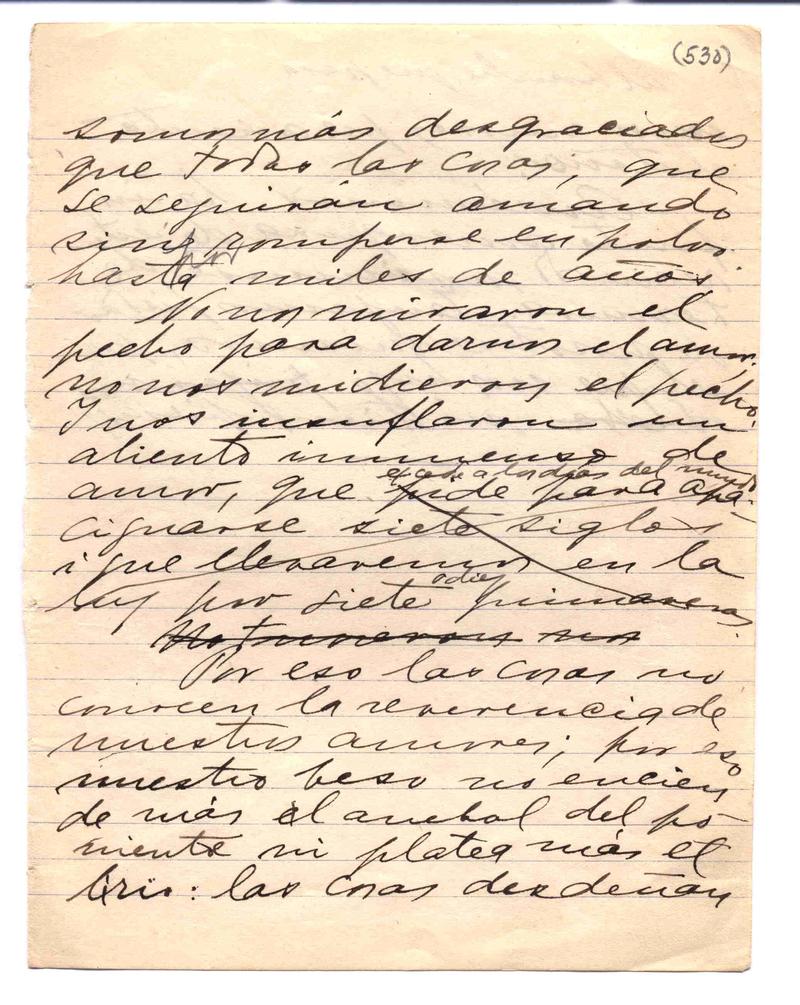 (530)
somos más desgraciados
que todas las cosas, que
se seguirán amando
sin romperse en polvo
por
hasta miles de años.
No nos miraron el
pecho para darnos el amor.
no nos midieron el pecho.
I nos insuflaron un
aliento immenso de
excede a los días del mundo
amor, que pide para apa-
ciguarse siete siglos
i que llevaremos en la
o diez
luz por siete primaveras.
No tuvieron un
Por eso las cosas no
conocen la reverencia de
nuestros amores; por eso
nuestro beso no encien
de más el arrebol del po-
niente ni platea más el
lirio: las cosas desdeñan